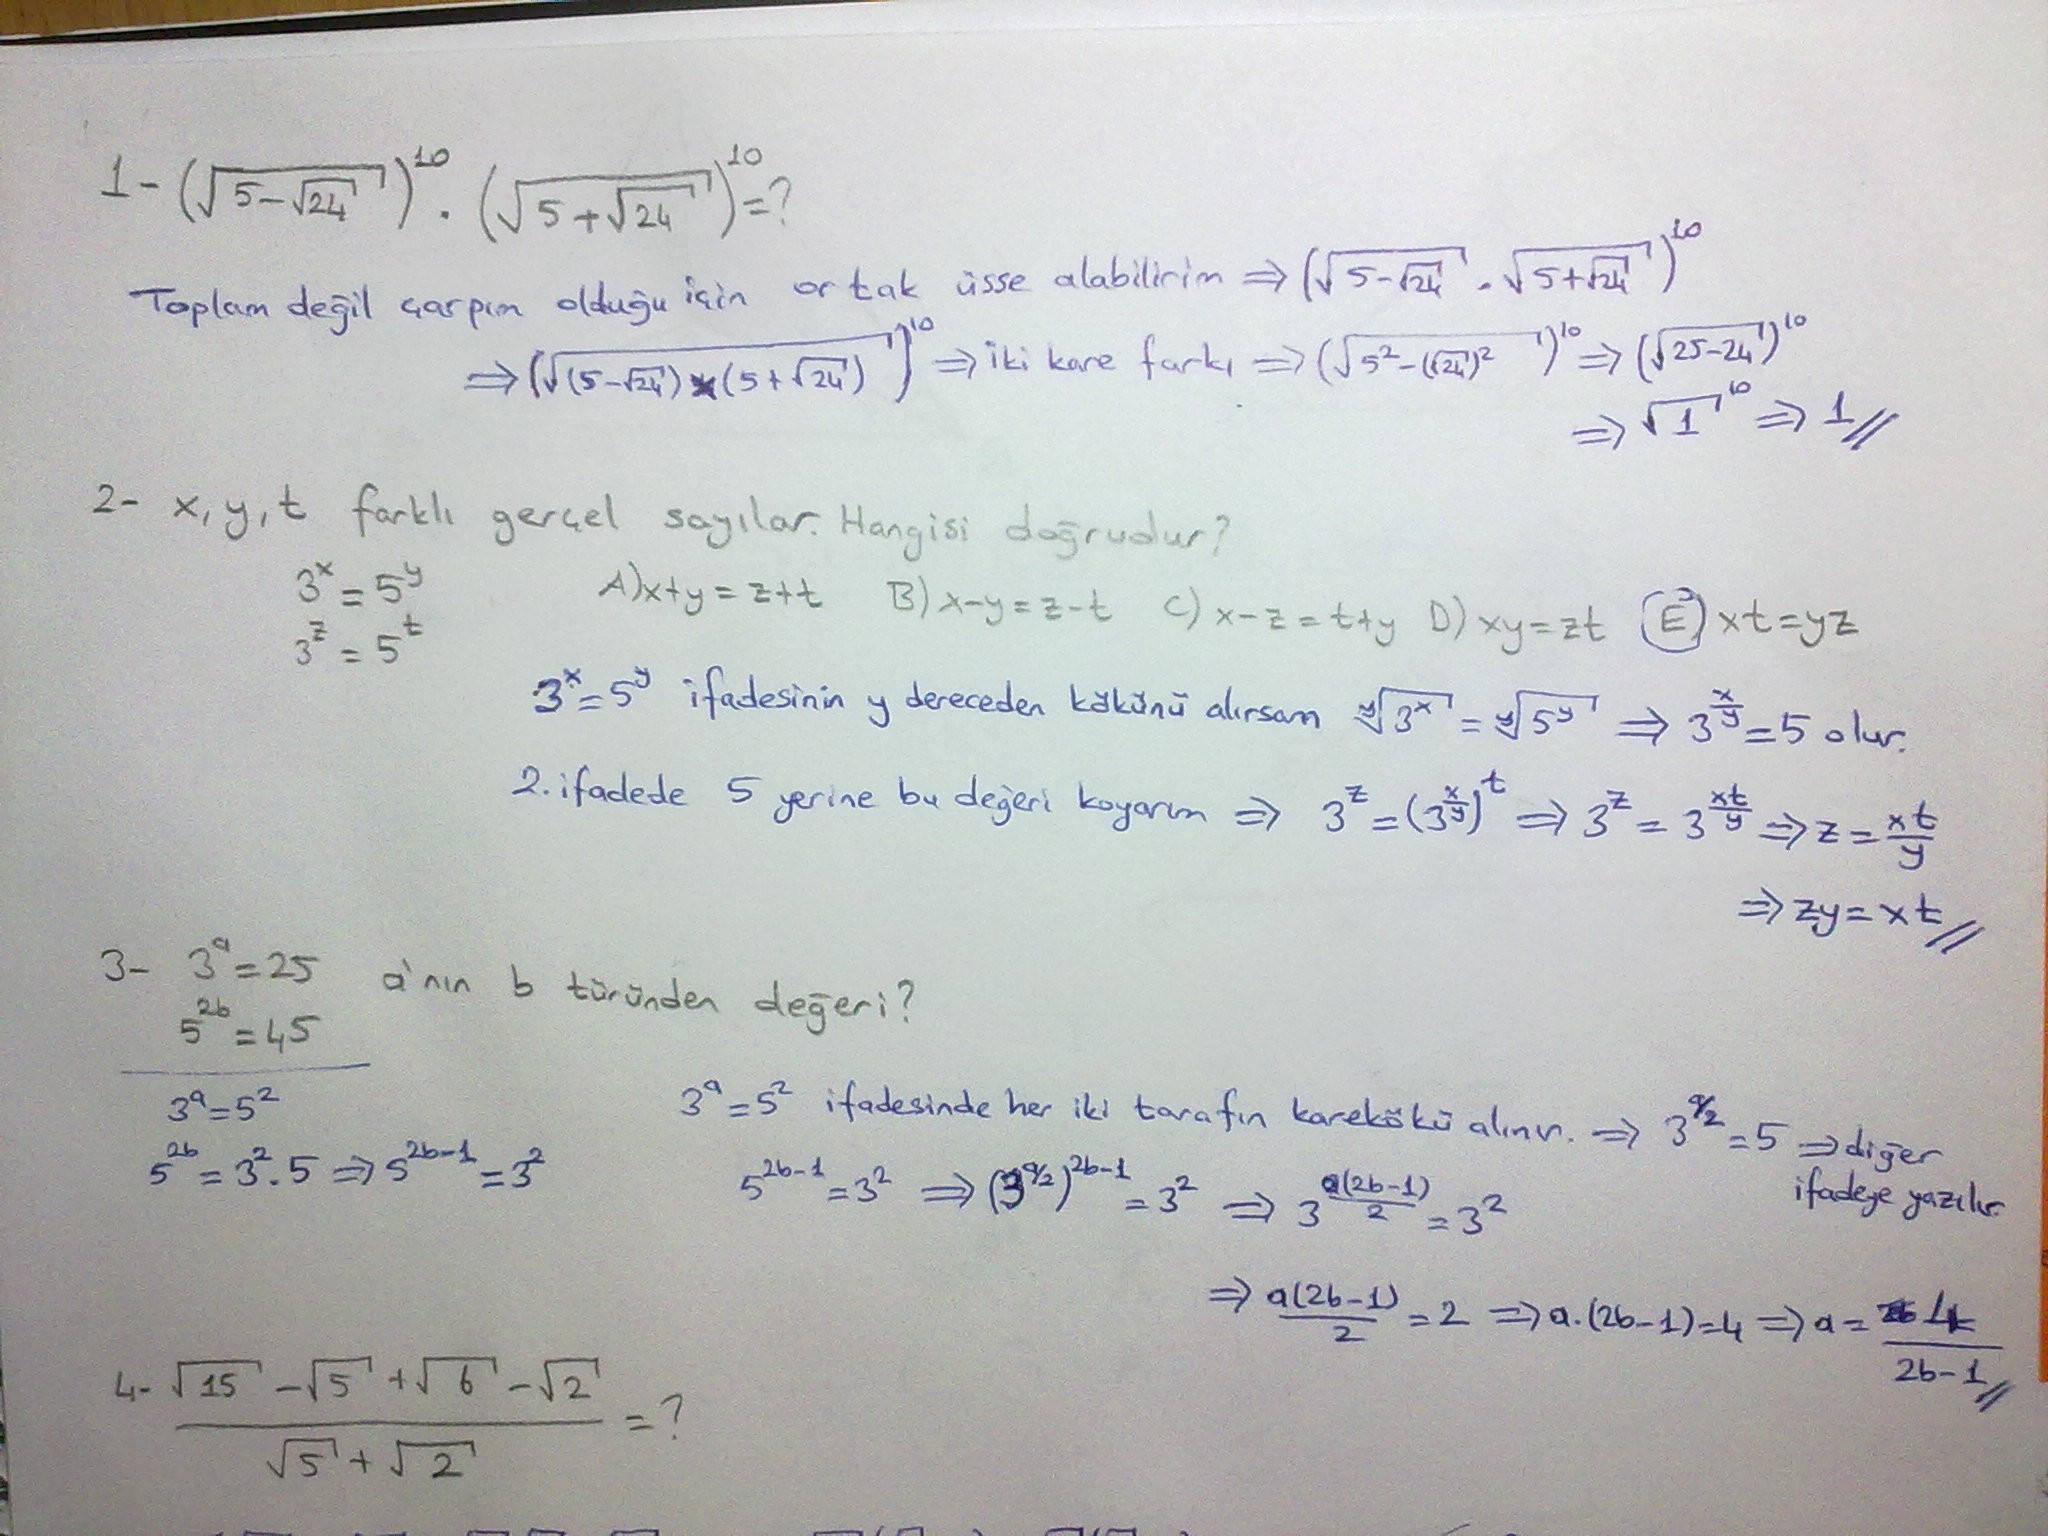 1- (√(5-√24))¹⁰ . (√(5+√24))¹⁰ = ?
Toplam değil çarpım olduğu için ortak üsse alabilirim ⇒ (√(5-√24) . √(5+√24))¹⁰
⇒ (√((5-√24)x(5+√24)))¹⁰ ⇒ iki kare farkı ⇒ (√(5²-(√24)²))¹⁰ ⇒ (√(25-24))¹⁰
⇒ √1¹⁰ ⇒ 1//
2- x, y, t farklı gerçel sayılar. Hangisi doğrudur?
3^x = 5^y A) x+y = z+t B) x-y = z-t C) x-z = t+y D) xy = zt E) xt = yz
3^z = 5^t
3^x = 5^y ifadesinin y dereceden kökünü alırsam ʸ√(3^x) = ʸ√(5^y) ⇒ 3^(x/y) = 5 olur.
2. ifadede 5 yerine bu değeri koyarım ⇒ 3^z = (3^(x/y))^t ⇒ 3^z = 3^(xt/y) ⇒ z = xt/y
⇒ zy = xt//
3- 3^a = 25 a'nın b türünden değeri?
5^(2b) = 45
3^a = 5² 3^a = 5² ifadesinde her iki tarafın karekökü alınır. ⇒ 3^(a/2) = 5 ⇒ diğer
5^(2b) = 3².5 ⇒ 5^(2b-1) = 3² 5^(2b-1) = 3² ⇒ (3^(a/2))^(2b-1) = 3² ⇒ 3^(a(2b-1)/2) = 3² ifadeye yazılır.
⇒ a(2b-1)/2 = 2 ⇒ a.(2b-1) = 4 ⇒ a = 4/(2b-1)//
4- (√15 - √5 + √6 - √2)/(√5 + √2) = ?